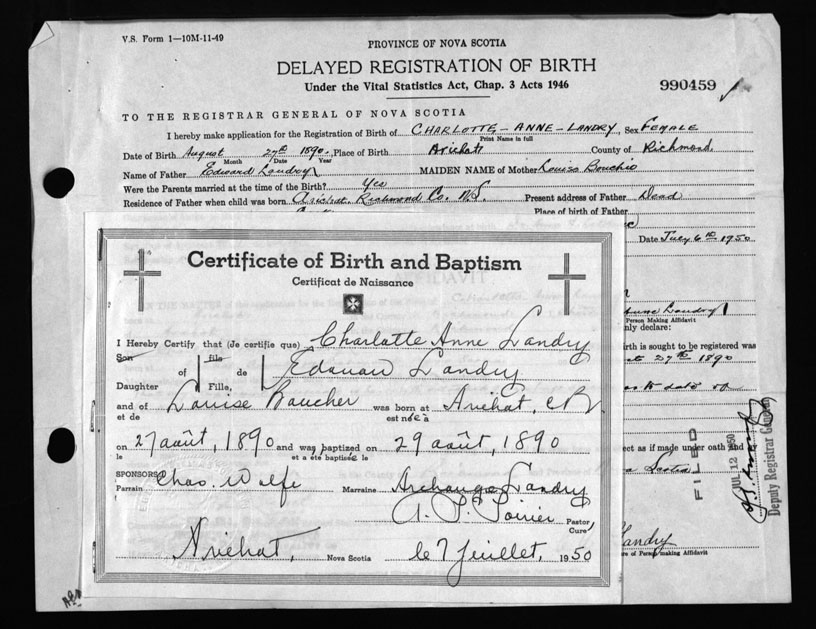 V.S. Form 1—10M-11-49
PROVINCE OF NOVA SCOTIA
DELAYED REGISTRATION OF BIRTH
Under the Vital Statistics Act, Chap. 3 Acts 1946
990459
TO THE REGISTRAR GENERAL OF NOVA SCOTIA
I hereby make application for the Registration of Birth of CHARLOTTE-ANNE-LANDRY, Sex FEMALE
Print Name in full
Date of Birth August 27th 1890, Place of Birth Arichat County of Richmond
Month Date Year
Name of Father Edward Landry MAIDEN NAME of Mother Louise Bouchie
Were the Parents married at the time of the Birth? Yes
Residence of Father when child was born Arichat, Richmond Co. N.S. Present address of Father Dead
Place of birth of Father
Date July 6th 1950
AFFIDAVIT
Anne Landry
Person Making Affidavit
nly declare:
irth is sought to be registered was
27th 1890
ect as if made under oath and
Scotia
FILED
JUL 12 1950
Deputy Registrar General
Landry
re of Person making Affidavit
Certificate of Birth and Baptism
Certificat de Naissance
I Hereby Certify that (Je certifie que) Charlotte Anne Landry
Son of fils de Edouard Landry
Daughter Fille,
and of Louise Boucher was born at Arichat, CB
et de est née à
on 27 août, 1890 and was baptized on 29 août, 1890
le et a été baptisée le
SPONSORS Chas. Wolfe Marraine Archange Landry
Parrain
A. P. Poirier Pastor
Curé
Arichat, Nova Scotia le 7 juillet, 1950